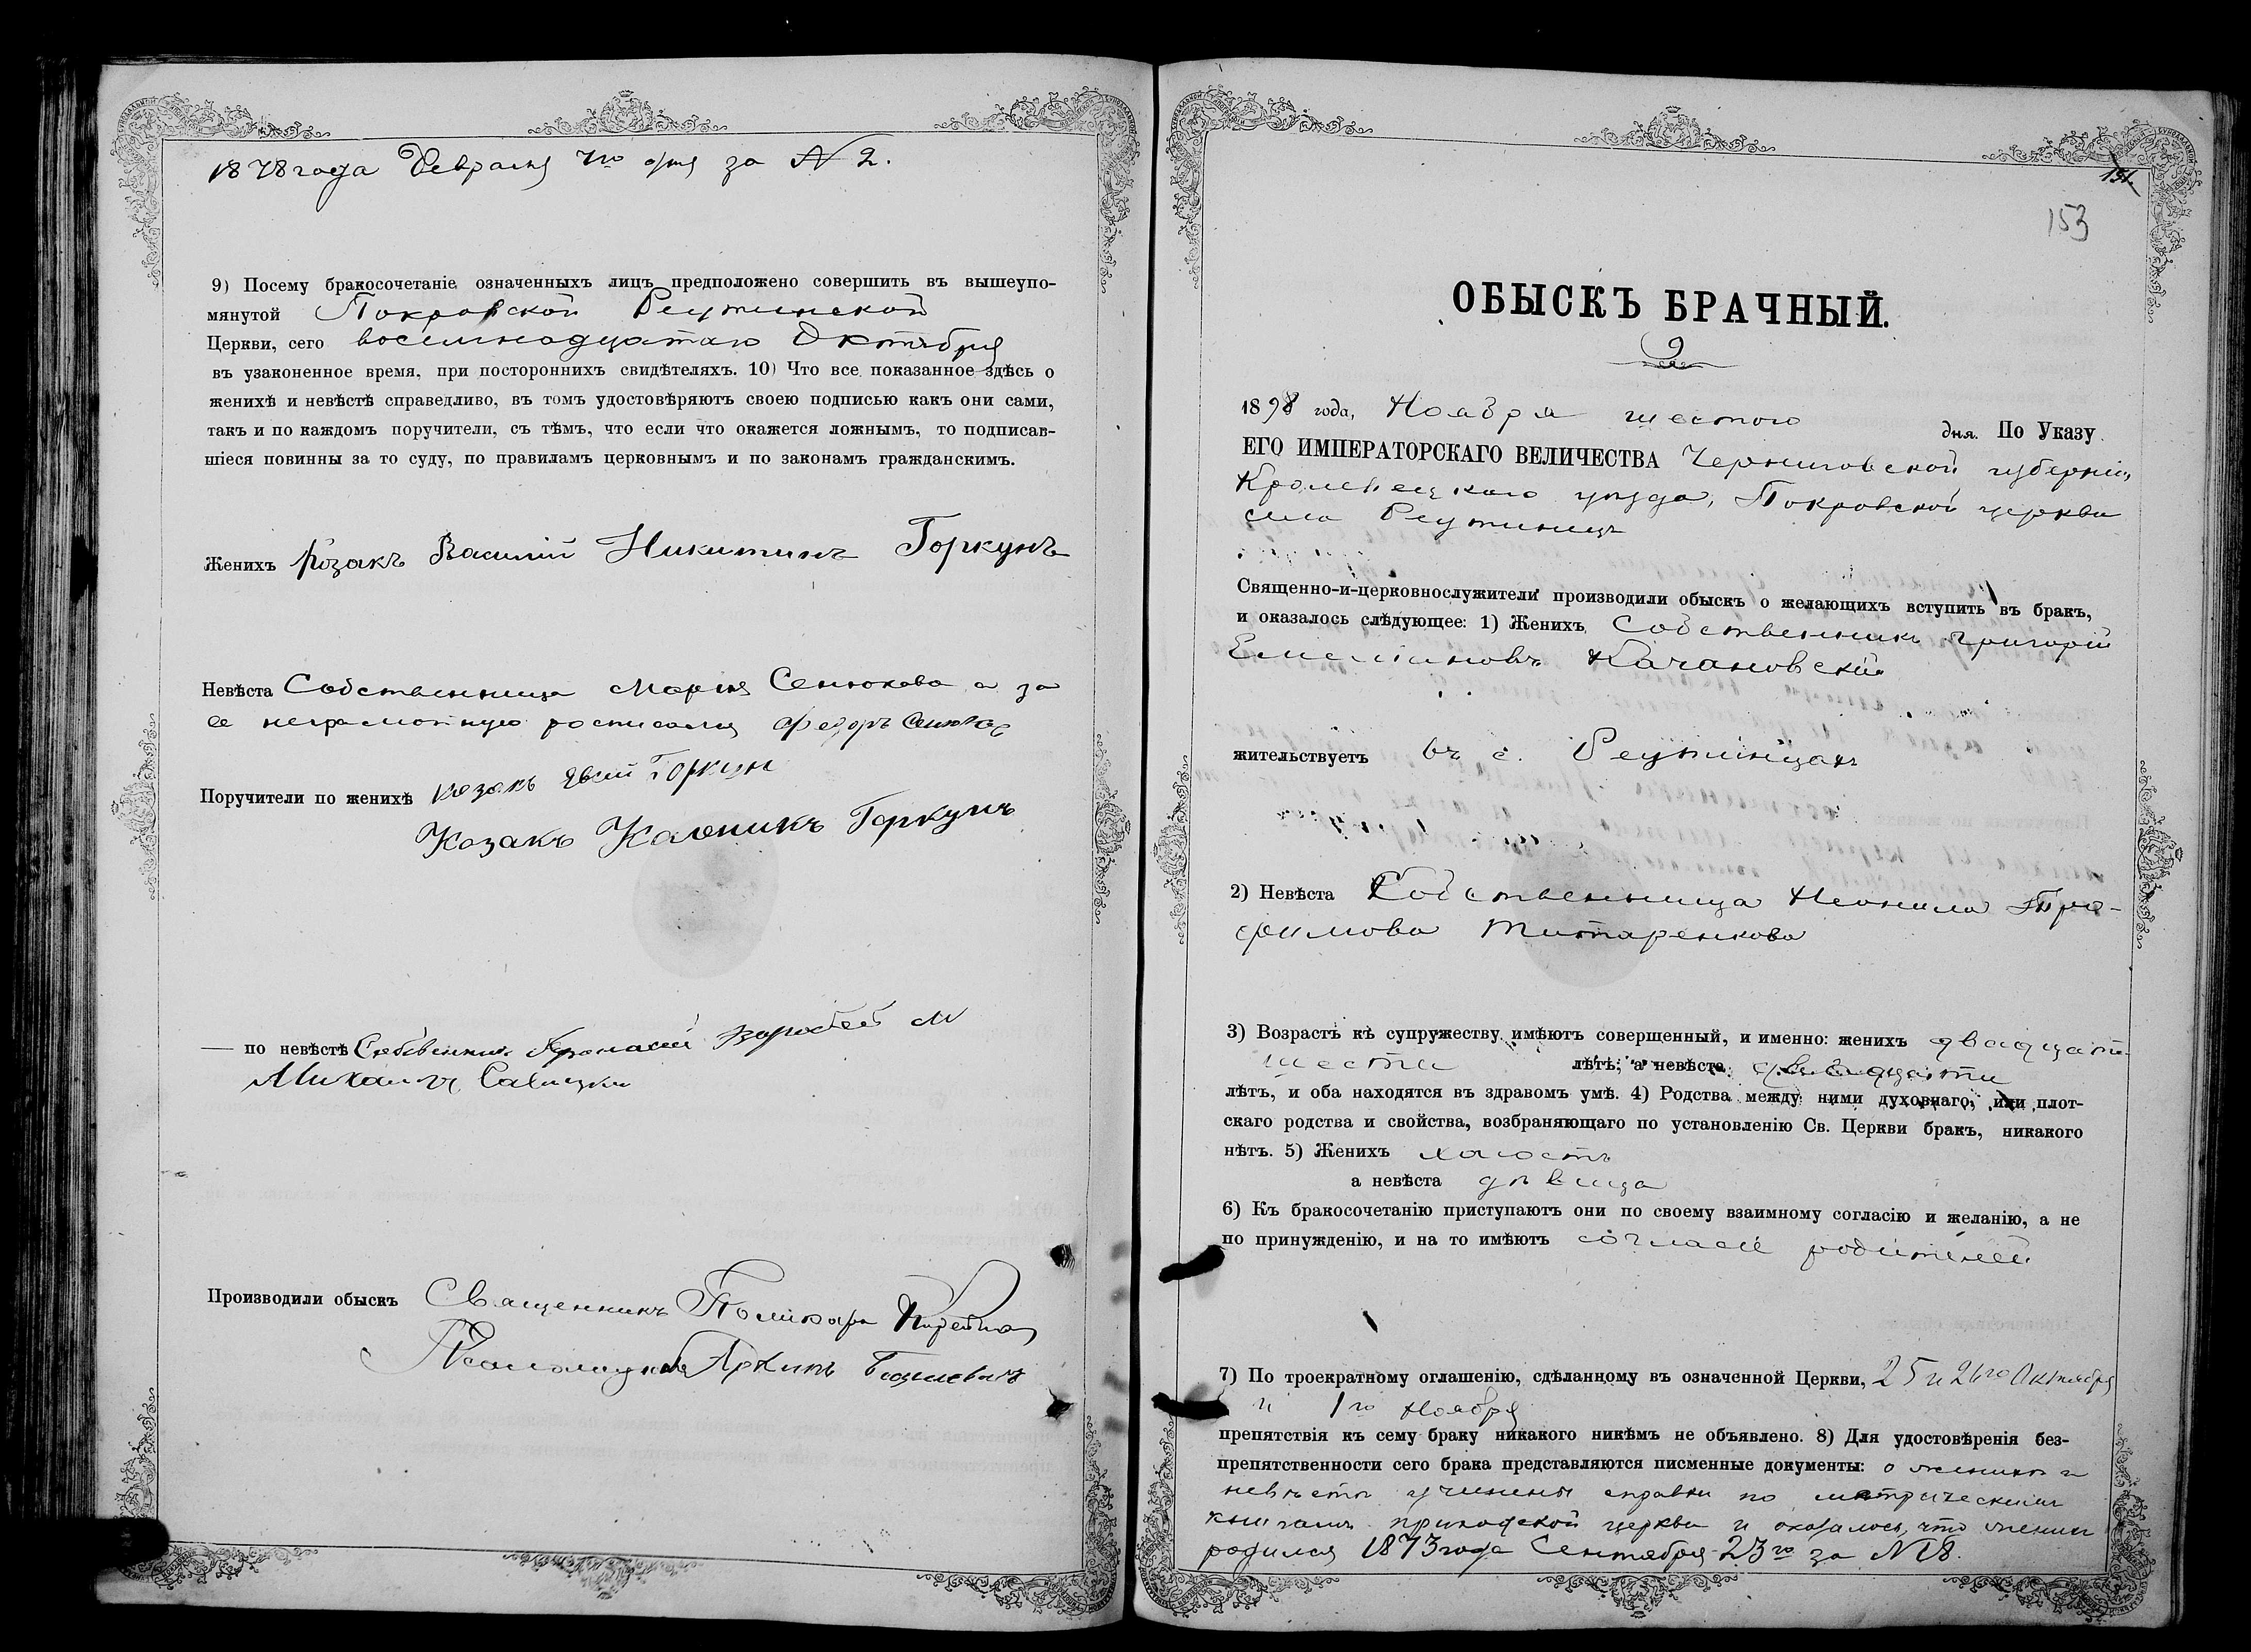 1878 года Февраля 7го дня за № 2.
9) Посему бракосочетаніе означенныхъ лицъ предположено совершить въ вышеупо-
мянутой Покровской Реутинской
Церкви, сего восемнадцатаго Октября
въ узаконенное время, при постороннихъ свидѣтеляхъ. 10) Что все показанное здѣсь о
женихѣ и невѣстѣ справедливо, въ томъ удостовѣряютъ своею подписью какъ они сами,
такъ и по каждомъ поручители, съ тѣмъ, что если что окажется ложнымъ, то подписав-
шіеся повинны за то суду, по правиламъ церковнымъ и по законамъ гражданскимъ.
Женихъ Козакъ Василій Никитинъ Горкунъ
Невѣста Собственница Марія Сенюкова а за
ее неграмотную росписался Федоръ Сенюкъ
Поручители по женихѣ козакъ Горкунъ
Козакъ Каленикъ Горкунъ
— по невѣстѣ
Михаилъ Савицки
Производили обыскъ Священникъ
Псаломщикъ
151.
153
ОБЫСКЪ БРАЧНЫЙ.
9
1898 года, Ноября шестого дня. По Указу
ЕГО ИМПЕРАТОРСКАГО ВЕЛИЧЕСТВА Черниговской губерніи,
Кролевецкаго уѣзда, Покровской церкви
села Реутинецъ
Священно-и-церковнослужители производили обыскъ о желающихъ вступить въ бракъ,
и оказалось слѣдующее: 1) Женихъ Собственникъ Григорій
Емеліановъ Качановскій
жительствуетъ въ с. Реутинцахъ
2) Невѣста Собственница Неонила Тро-
фимова Титаренкова
3) Возрастъ къ супружеству имѣютъ совершенный, и именно: женихъ двадцати
шести лѣтъ; а невѣста двадцати
лѣтъ, и оба находятся въ здравомъ умѣ. 4) Родства между ними духовнаго, или плот-
скаго родства и свойства, возбраняющаго по установленію Св. Церкви бракъ, никакого
нѣтъ. 5) Женихъ холостъ
а невѣста дѣвица
6) Къ бракосочетанію приступаютъ они по своему взаимному согласію и желанію, а не
по принужденію, и на то имѣютъ согласіе родителей
7) По троекратному оглашенію, сдѣланному въ означенной Церкви, 25 и 26го Октября
и 1го Ноября
препятствія къ сему браку никакого никѣмъ не объявлено. 8) Для удостовѣренія без-
препятственности сего брака представляются писменные документы: о женихѣ и
невѣстѣ учинены справки по метрическимъ
книгамъ приходской церкви и оказалось, что женихъ
родился 1873 года Сентября 23го за № 18.